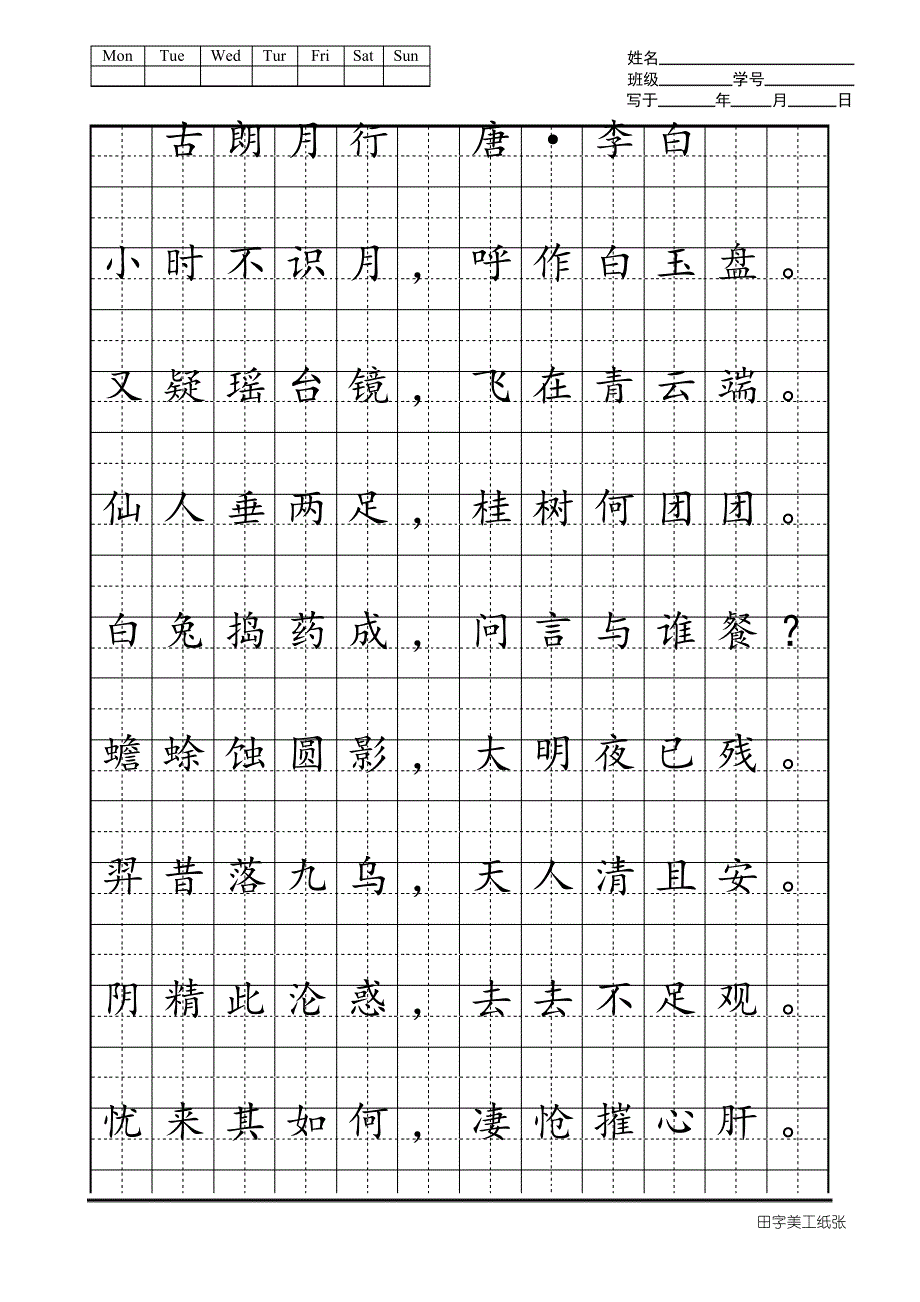 Mon Tue Wed Tur Fri Sat Sun
姓名
班级 学号
写于 年 月 日
古朗月行 唐·李白
小时不识月，呼作白玉盘。
又疑瑶台镜，飞在青云端。
仙人垂两足，桂树何团团。
白兔捣药成，问言与谁餐?
蟾蜍蚀圆影，大明夜已残。
羿昔落九乌，天人清且安。
阴精此沦惑，去去不足观。
忧来其如何，凄怆摧心肝。
田字美工纸张